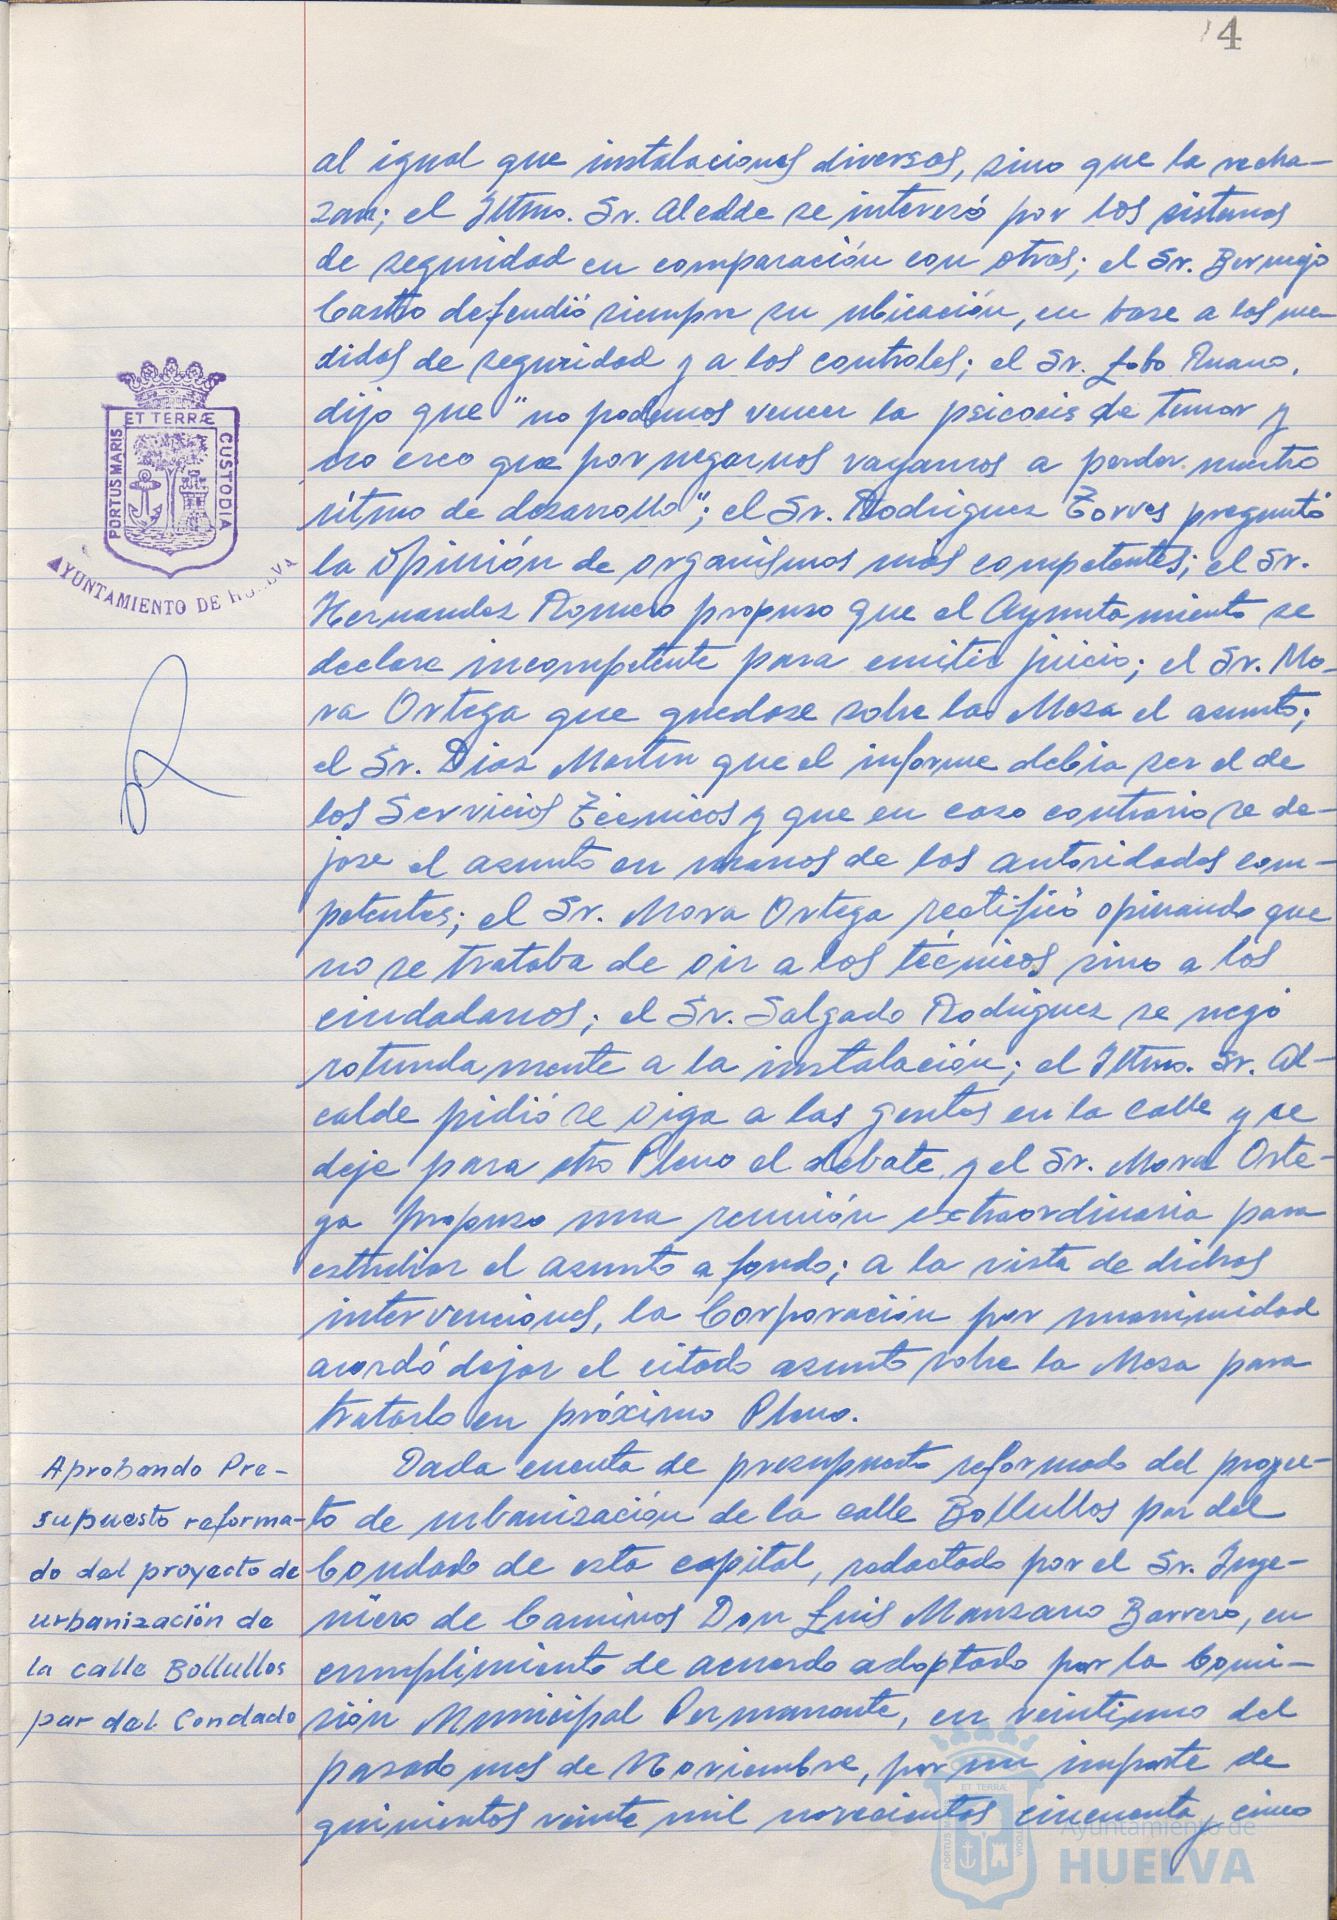 4
al igual que instalaciones diversas, sino que la recha-
zan; el Iltmo. Sr. Alcalde se interesó por los sistemas
de seguridad en comparación con otros; el Sr. Bermejo
Castro defendió siempre su ubicación, en base a las me
didas de seguridad y a los controles; el Sr. Lobo Ruano,
dijo que "no podemos vencer la psicosis de temor y
no creo que por negarnos vayamos a perder nuestro
ritmo de desarrollo"; el Sr. Rodriguez Torres preguntó
la opinión de organismos más competentes; el Sr.
Hernandez Romero propuso que el Ayuntamiento se
declare incompetente para emitir juicio; el Sr. Mo-
ra Ortega que quedase sobre la Mesa el asunto;
el Sr. Diaz Martin que el informe debia ser el de
los Servicios Técnicos y que en caso contrario se de-
jase el asunto en manos de las autoridades com-
petentes; el Sr. Mora Ortega rectificó opinando que
no se trataba de oir a los técnicos sino a los
ciudadanos; el Sr. Salgado Rodriguez se negó
rotundamente a la instalación; el Iltmo. Sr. Al-
calde pidió se oiga a las gentes en la calle y se
deje para otro Pleno el debate y el Sr. Mora Orte-
ga propuso una reunión extraordinaria para
estudiar el asunto a fondo; a la vista de dichas
intervenciones, la Corporación por unanimidad
acordó dejar el citado asunto sobre la Mesa para
tratarlo en próximo Pleno.
Aprobando Pre-
supuesto reforma-
do del proyecto de
urbanización de
la calle Bollullos
par del Condado
Dada cuenta de presupuesto reformado del proyec-
to de urbanización de la calle Bollullos par del
Condado de esta capital, redactado por el Sr. Inge-
niero de Caminos Don Luis Manzano Barrero, en
cumplimiento de acuerdo adoptado por la Comi-
sión Municipal Permanente, en veintiuno del
pasado mes de Noviembre, por un importe de
quinientos veinte mil novecientos cincuenta y cinco
PORTUS MARIS ET TERRÆ CUSTODIA
AYUNTAMIENTO DE HUELVA
Ayuntamiento de
HUELVA